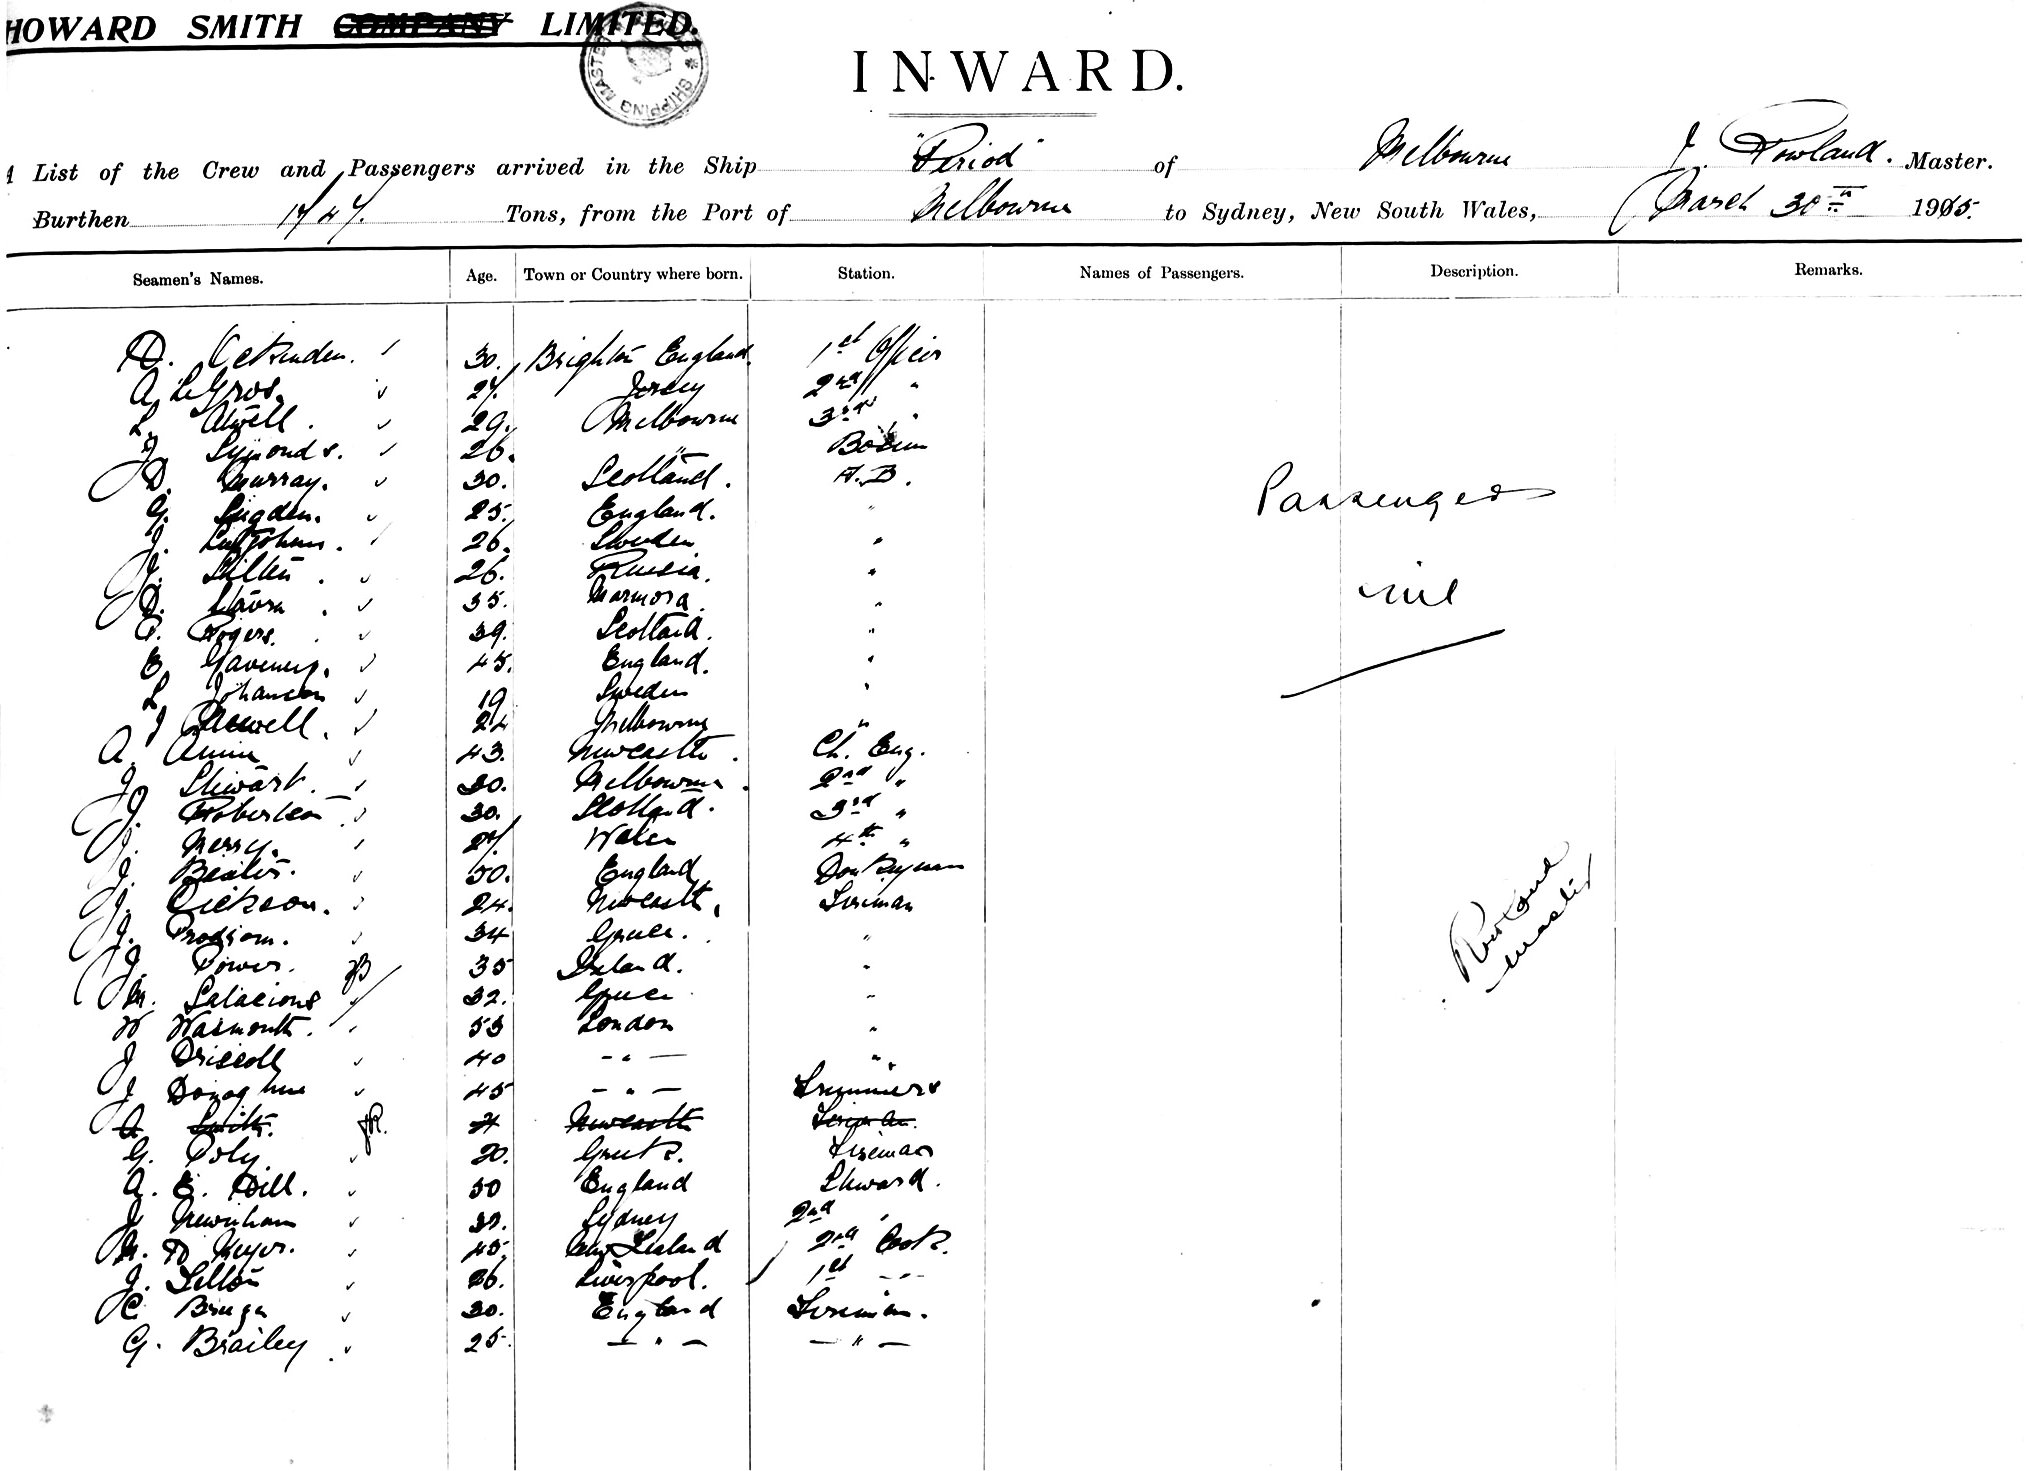 HOWARD SMITH COMPANY LIMITED.
SHIPPING MASTER
INWARD.
A List of the Crew and Passengers arrived in the Ship "Period" of Melbourne J. Rowland. Master.
Burthen Tons, from the Port of Melbourne to Sydney, New South Wales, March 30th 1915.
Seamen's Names. Age. Town or Country where born. Station. Names of Passengers. Description. Remarks.
D. 30. Brighton England. 1st Officer
A. LeGros. 27. Jersey 2nd "
L. Atwell. 29. Melbourne 3rd "
J. Symonds. 26. " Bosun
D. Murray. 30. Scotland. A.B.
G. Sugden. 25. England. "
J. 26. Sweden "
J. 26. Russia. "
D. 35. Marmora. "
P. Rogers. 39. Scotland. "
E. 45. England. "
L. Johanson 19 Sweden "
J Newell. 24 Melbourne "
A. 43. Newcastle. Ch. Eng.
J Stewart. 30. Melbourne. 2nd "
J. Robertson 30. Scotland. 3rd "
J. Merry. 27. Wales 4th "
J. 50. England Donkeyman
J. Dickson. 24. Newcastle. Fireman
J. 34 Greece. "
J. Power. 35 Ireland. "
M. 32. Greece "
W Wasmouth. 53 London "
J Driscoll 40 - " - "
J Donoghue 45 - " - Trimmers
A Smith. Newcastle Fireman.
G. Poly. 20. Greek. Fireman
A. E. Dill. 50 England Steward.
J Newnham 32. Sydney 2nd "
M. D Meyer. 45. New Zealand 2nd Cook.
J. 26. Liverpool. 1st - " -
C. 30. England Fireman.
G. Brailey 25. - " - - " -
Passengers
nil
Rowland
Master